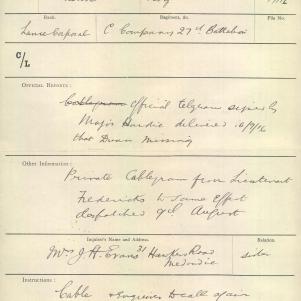 Rank.
Regiment, &c.
File No.
Lance Corporal C Company 27th Battalion
C/L
OFFICIAL REPORTS:
Cablegram Official telegram signed by
Major Hardie delivered
that Evan missing
Other Information:
Private Cablegram from Lieutenant
Fredericks to same effect
despatched 9th August
Inquirer's Name and Address.
Relation.
Mrs J. H. Evans 31 Harpers Road
Medindie
sister
Instructions:
Cable & inquirer to call again